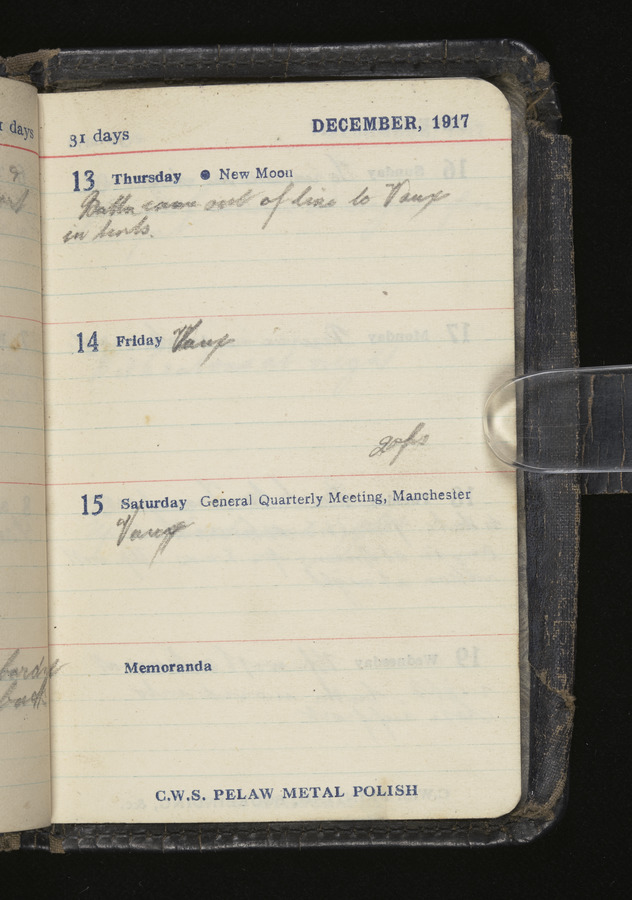 31 days DECEMBER, 1917
13 Thursday ● New Moon
Battn came out of line to Vaux
in tents.
14 Friday Vaux
15 Saturday General Quarterly Meeting, Manchester
Vaux
Memoranda
C.W.S. PELAW METAL POLISH
days